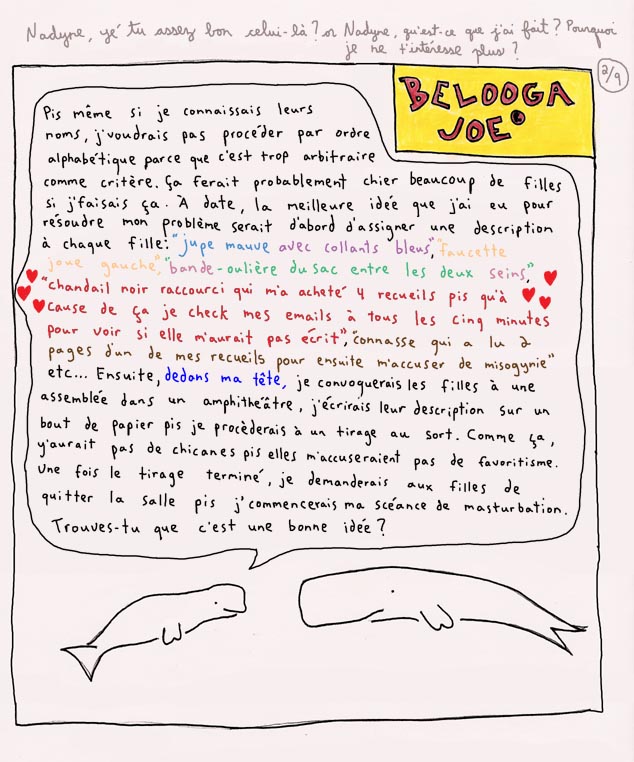 Nadyne, yé tu assez bon celui-là? or Nadyne, qu'est-ce que j'ai fait? Pourquoi
je ne t'intéresse plus?
2/9
BELOOGA
JOE
Pis même si je connaissais leurs
noms, j'voudrais pas procéder par ordre
alphabétique parce que c'est trop arbitraire
comme critère. Ça ferait probablement chier beaucoup de filles
si j'faisais ça. À date, la meilleure idée que j'ai eu pour
résoudre mon problème serait d'abord d'assigner une description
à chaque fille: "jupe mauve avec collants bleus", "faucette
joue gauche," "bande-oulière du sac entre les deux seins,"
"Chandail noir raccourci qui m'a acheté 4 recueils pis qu'à
cause de ça je check mes emails à tous les cinq minutes
pour voir si elle m'aurait pas écrit", "connasse qui a lu 2
pages d'un de mes recueils pour ensuite m'accuser de misogynie"
etc... Ensuite, dedans ma tête, je convoquerais les filles à une
assemblée dans un amphithéâtre, j'écrirais leur description sur un
bout de papier pis je procèderais à un tirage au sort. Comme ça,
y'aurait pas de chicanes pis elles m'accuseraient pas de favoritisme.
Une fois le tirage terminé, je demanderais aux filles de
quitter la salle pis j'commencerais ma scéance de masturbation.
Trouves-tu que c'est une bonne idée?